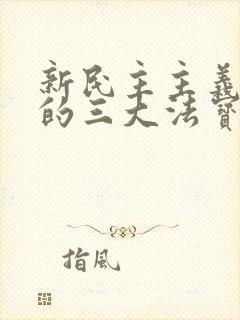 新民主主義
的三大法寶
指風